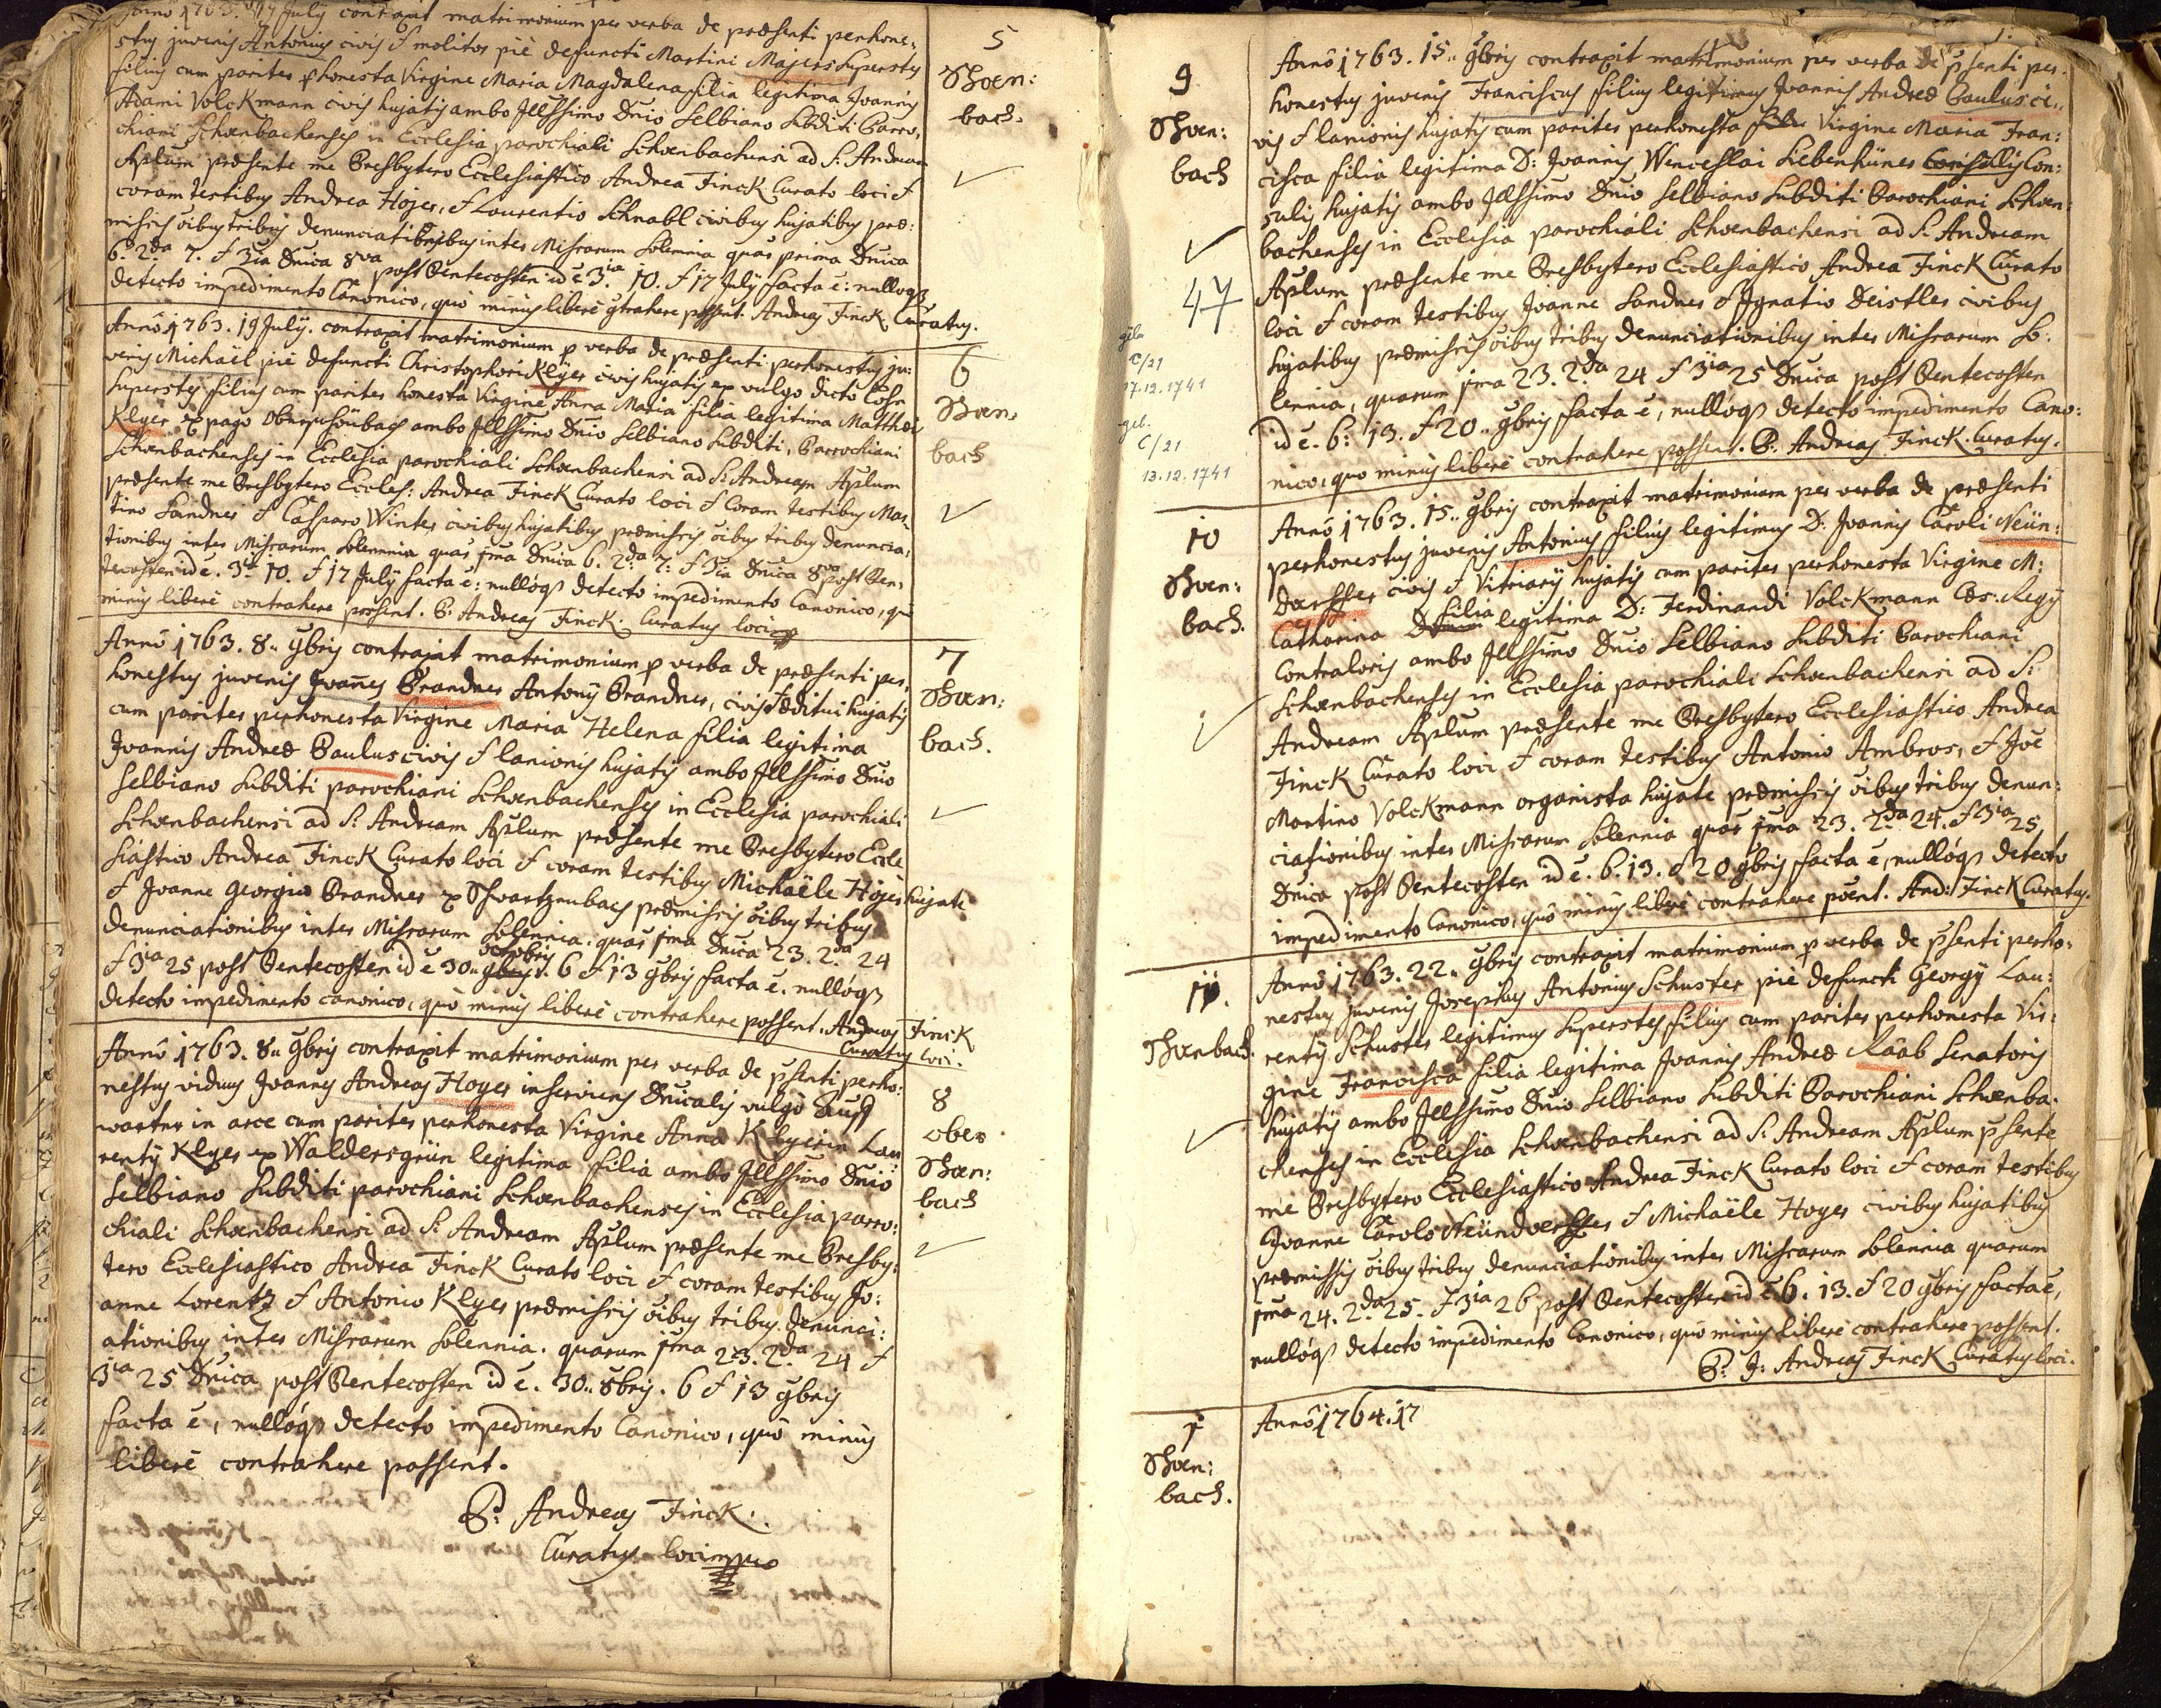 Annô 1763. 19 July contraxit matrimonium per verba de præsenti perhone:
stus juvenis Antonius civis & molitor piè defuncti Martini Majers superstes
filius cum pariter p honesta Virgine Maria Magdalena filia legitima Joannis
Adami Volckmann civis hujatis ambo Jllssimo Dnio Selbiano subditi Parro:
chiani Schœnbachenses in Ecclesia parochiali Schœnbachensi ad S: Andream
Aplum præsente me Presbytero Ecclesiastico Andrea Finck Curato loci &
coram testibus Andrea Hojer, & Laurentio Schnabl civibus hujatibus præ:
missis oibus tribus denunciationibus inter Missarum solemnia quar prima Dnica
6. 2da 7. & 3tia Dnica 8va post Pentecosten id ē 3tia 10. & 17 July facta ē: nullóq3
detecto impedimento Canonico, quò minus liberè gtrahere possent. Andreas Finck Curatus.
5
Schœn:
bach.
Annô 1763. 19 July. contraxit matrimonium p verba de præsenti perhonestus ju:
venis Michaël piè defuncti Christophori Klyer civis hujatis ex vulgo dicto Lohr
superstes filius cum pariter honesta Virgine Anna Maria filia legitima Matthæi
Klyer ex pago Oberschönbach ambo Jllssimo Dnio Selbiano subditi, Parrochiani
Schœnbachenses in Ecclesia parochiali Schœnbachensi ad S: Andream Aplum
præsente me Presbytero Eccles: Andrea Finck Curato loci & Coram testibus Mar:
tino Sandner & Casparo Winter civibus hujatibus præmissis oibus tribus denuncia:
tionibus inter Missarum solemnia quar jma Dnica 6. 2da 7: & 3tia Dnica 8va post Pen:
tecosten id ē. 3tia 10. & 17 July facta ē: nullóq3 detecto impedimento Canonico, quò
minus liberè contrahere possent. P: Andreas Finck. Curatus loci mp
6
Schœn:
bach
Annô 1763. 8.. 9bris contraxit matrimonium p verba de præsenti per:
honestus juvenis Joañes Brandner Antonÿ Brandner, civis & æditui hujatis
cum pariter perhonesta Virgine Maria Helena filia legitima
Joannis Andreæ Paulus civis & lanionis hujatis ambo Jllssimo Dnio
Selbiano subditi parochiani Schœnbachenses in Ecclesia parochiali
Schœnbachensi ad S: Andream Aplum præsente me Presbytero Eccle
siastico Andrea Finck Curato loci & coram testibus Michaële Hojer hujate
& Joanne Georgio Brandner ex Schwartzenbach præmissis oibus tribus
denunciationibus inter Missarum solennia. quar jma Dnica 23. 2da 24
& 3tia 25 post Pentecosten id ē 30.. octobris 6 & 13 9bris facta ē. nullóq3
detecto impedimento canonico, quò minus liberè contrahere possent. Andreas Finck
Curatus loci.
7
Schœn:
bach.
Annô 1763. 8.. 9bris contraxit matrimonium per verba de psenti perho:
nestus viduus Joannes Andreas Hoyer inserviens Dnicalis vulgò Auff
warter in arce cum pariter perhonesta Virgine Anna Klyerin Lau
rentÿ Klyer ex Waldersgrün legitima filia ambo Jllssimo Dnio
Selbiano subditi parochiani Schœnbachenses in Ecclesia parro:
chiali Schœnbachensi ad S: Andream Aplum præsente me Presby:
tero Ecclesiastico Andrea Finck Curato loci & coram testibus Jo:
anne Lorentz & Antonio Klyer præmissis oibus tribus denunci:
ationibus inter Missarum solennia. quarum jma 23. 2da 24 &
3tia 25 Dnica post Pentecosten id ē. 30.. 8bris. 6 & 13 9bris
facta ē, nullóq3 detecto impedimento Canonico, quò minus
liberè contrahere possent.
P: Andreas Finck.
Curatus loci mp
8
ober
Schœn:
bach
9
Schœn:
bach
47
geb.
C/21
17.12.1741
geb.
C/21
13.12.1741
Annô 1763. 15.. 9bris contraxit matrimonium per verba de psenti per:
honestus juvenis Franciscus filius legitimus Joannis Andreæ Paulus ci:
vis & lanionis hujatis cum pariter perhonesta Virgine Maria Fran:
cisca filia legitima D: Joannis Wenceslai Liebenhüner Consulis Con:
sulis hujatis ambo Jllssimo Dnio Selbiano subditi Parochiani Schœn:
bachenses in Ecclesia parochiali Schœnbachensi ad S: Andream
Aplum præsente me Presbytero Ecclesiastico Andrea Finck Curato
loci & coram testibus Joanne Sandner & Jgnatio Deistler civibus
hujatibus præmissis oibus tribus denunciationibus inter Missarum so:
lennia, quarum jma 23. 2da 24 & 3tia 25 Dnica post Pentecosten
id ē. 6: 13. & 20.. 9bris facta ē, nullóq3 detecto impedimento Cano:
nico, quo minus liberè contrahere possent. P: Andreas Finck. Curatus.
10
Schœn:
bach.
Annô 1763. 15.. 9bris contraxit matrimonium per verba de præsenti
perhonestus juvenis Antonius filius legitimus D: Joannis Caroli Neün:
dœrffer civis & Vitriarÿ hujatis cum pariter perhonesta Virgine M:
Catharina filia legitima D: Ferdinandi Volckmann Cæs: Regÿ
Contraloris ambo Jllssimo Dnio Selbiano subditi Parochiani
Schœnbachenses in Ecclesia parochiali Schœnbachensi ad S:
Andream Aplum præsente me Presbytero Ecclesiastico Andrea
Finck Curato loci & coram testibus Antonio Ambros, & Joe
Martino Volckmann organista hujate præmissis oibus tribus denun:
ciationibus inter Missarum solennia quar jma 23. 2da 24. & 3tia 25
Dnica post Pentecosten id ē. 6. 13. & 20 9bris facta ē, nullóq3 detecto
impedimento Canonico, quò minus liberè contrahere poent. And: Finck Curatus.
11.
Schœnbach.
Annô 1763. 22.. 9bris contraxit matrimonium p verba de psenti perho:
nestus juvenis Josephus Antonius Schuster piè defuncti Georgÿ Lau:
rentÿ Schuster legitimus superstes filius cum pariter perhonesta Vir:
gine Francisca filia legitima Joannis Andreæ Raab Senatoris
hujatis ambo Jllssimo Dnio Selbiano subditi Parochiani Schœnba:
chenses in Ecclesia Schœnbachensi ad S: Andream Aplum psente
me Presbytero Ecclesiastico Andrea Finck Curato loci & coram testibus
Joanne Carolo Neündœrffer & Michaële Hoyer civibus hujatibus
præmissis oibus tribus denunciationibus inter Missarum solennia quarum
jma 24. 2da 25. & 3tia 26 post Pentecosten id ē 6. 13. & 20 9bris facta ē,
nullóq3 detecto impedimento Canonico, quò minus liberè contrahere possent.
P: J: Andreas Finck Curatus loci.
1
Schœn:
bach.
Annô 1764. 17